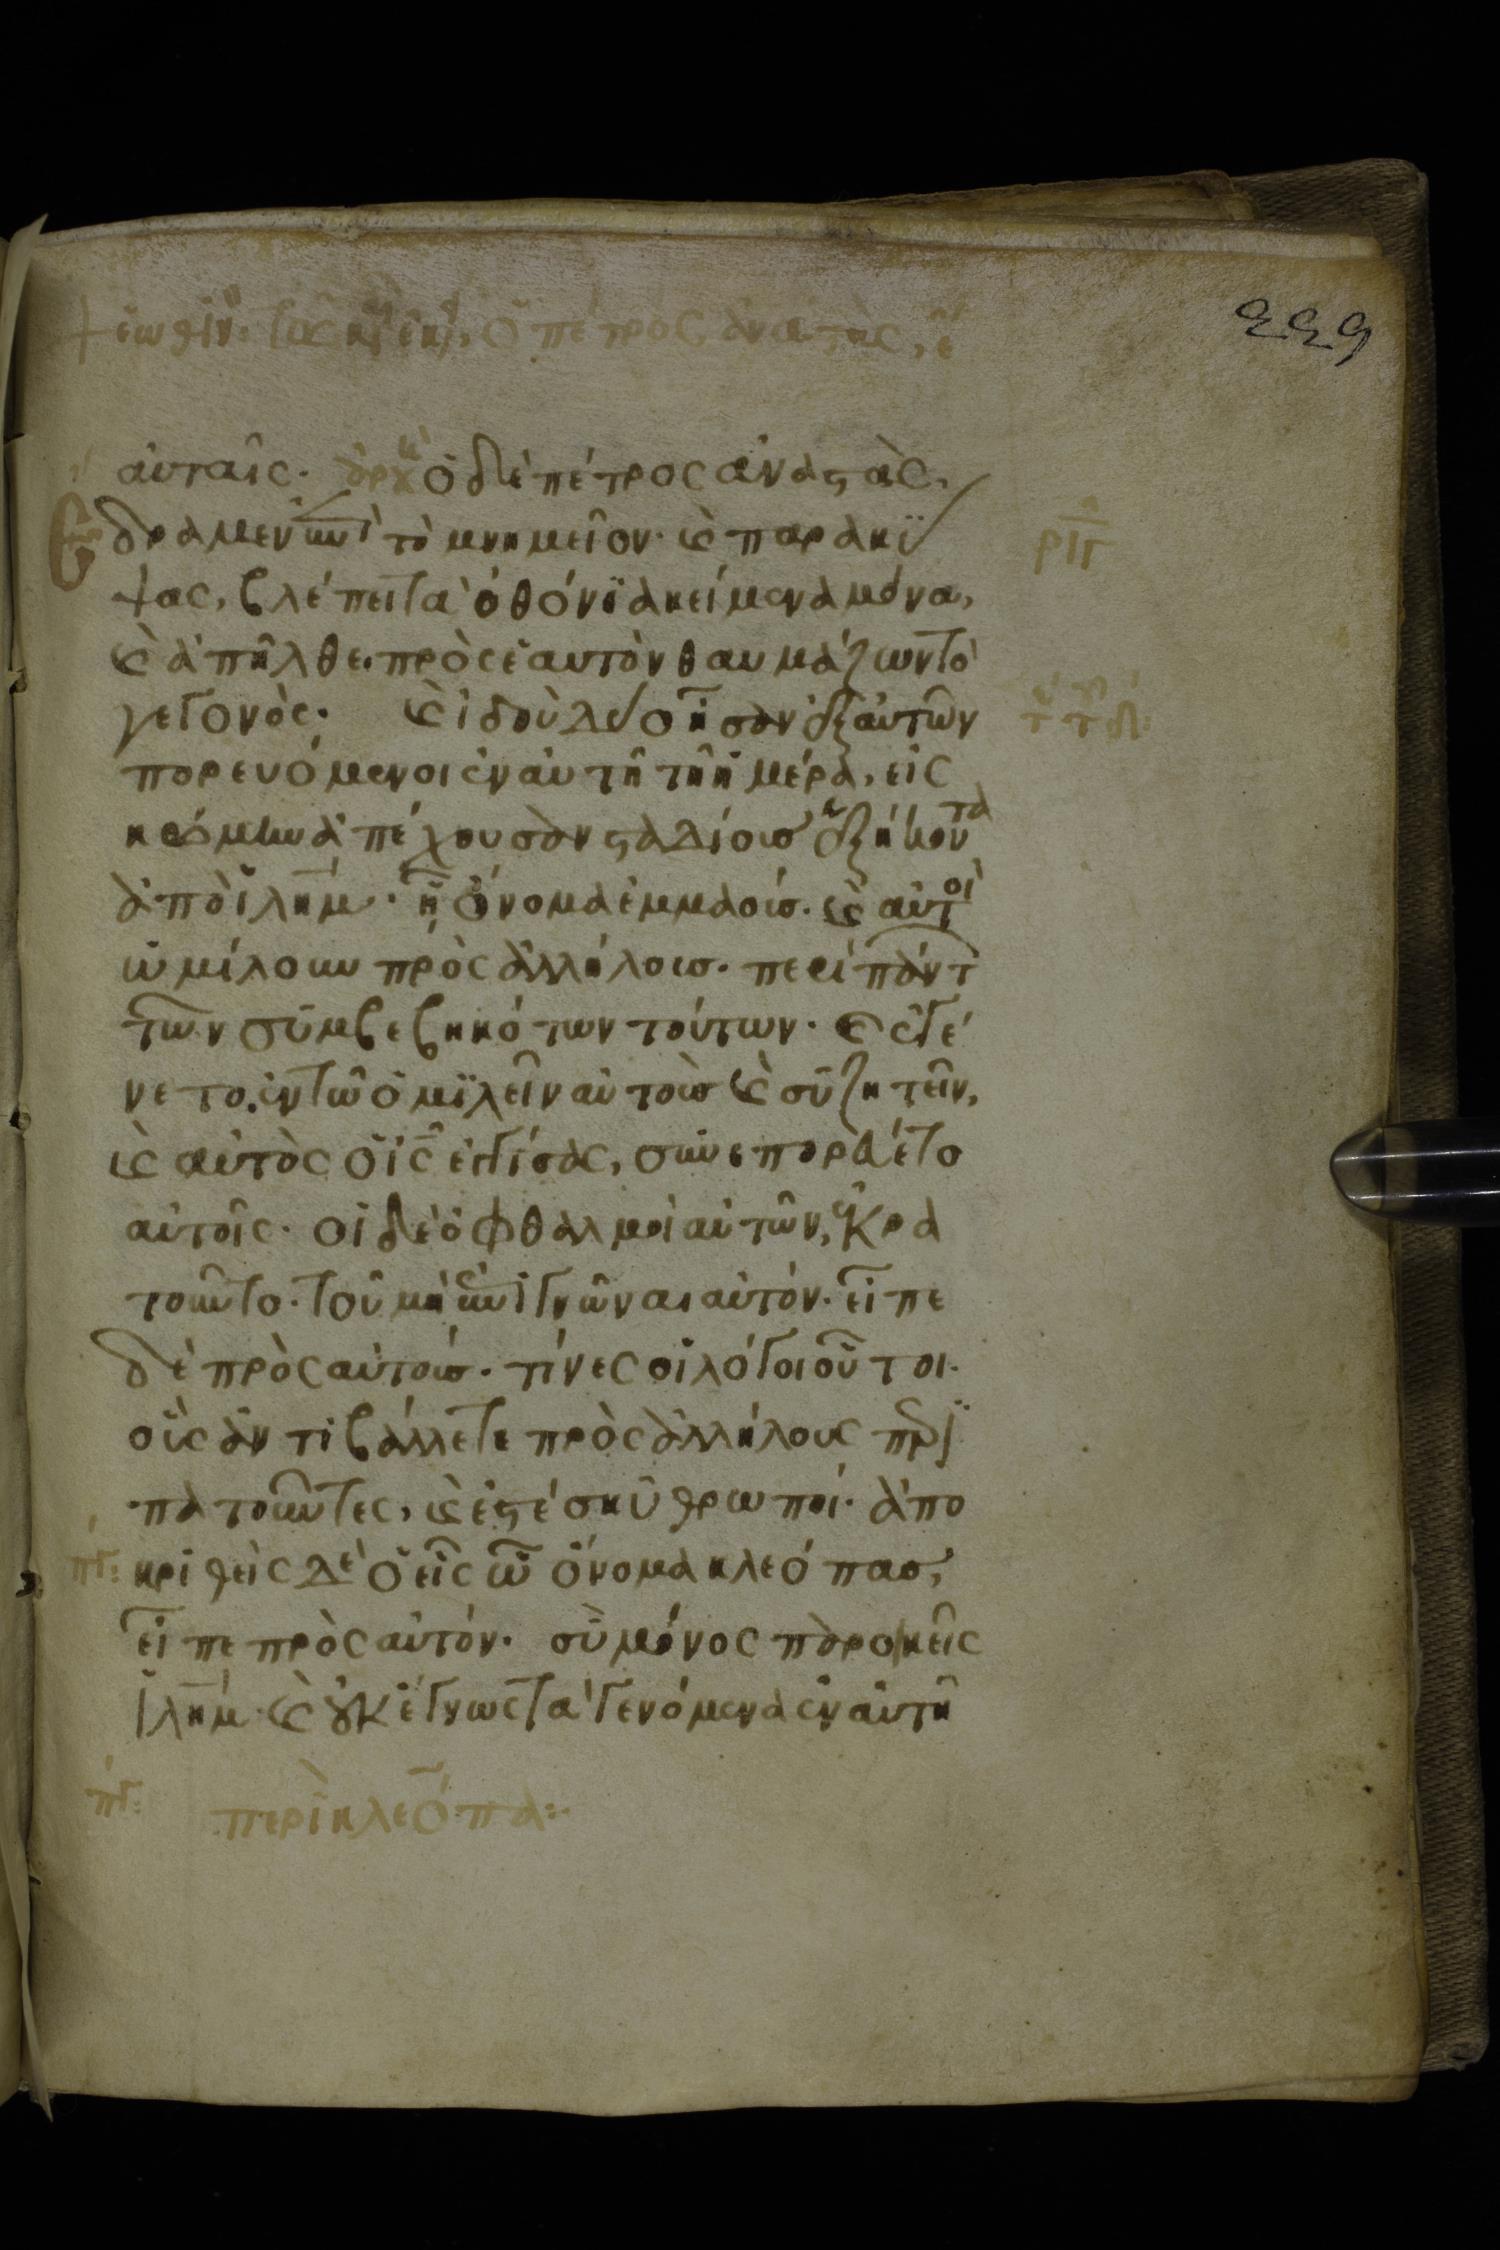 αὐταῖς. ἀρχ ὁ δὲ πέτρος ἀναστὰς,
ἔδραμεν ἐπὶ τὸ μνημεῖον· καὶ παρακϋ
ψας, βλέπει τὰ ὀθόνϊα κείμενα μόνα,
καὶ ἀπῆλθε. πρὸς ἑαυτὸν θαυμάζων τὸ
γεγονὸς· καὶ ἰδοὺ δύο ἦσαν ἐξ αὐτῶν
πορευόμενοι ἐν αὐτῆ τῆ ἡμέρα, εἰς
κώμην ἀπέχουσαν σταδίους ἑξήκοντα
ἀπὸ ἱλημ· ἧ ὄνομα ἐμμαούς. καὶ αὐτοὶ
ὡμίλουν πρὸς ἀλλήλους. περὶ πάντ
τῶν συμβεβηκότων τούτων· καὶ ἐγέ
νετο. ἐν τῶ ὁμϊλεῖν αὐτοὺς καὶ συζητεῖν,
καὶ αὐτὸς ὁ ἰς ἐγγίσας, συνεπορεύετο
αὐτοῖς· οἱ δὲ ὀφθαλμοὶ αὐτῶν, ἐκρα
τοῦντο· τοῦ μὴ ἐπιγνῶναι αὐτόν. εἶπε
δὲ πρὸς αὐτούς. τίνες οἱ λόγοι οὗτοι.
οὓς ἀντιβάλλετε πρὸς ἀλλήλους περϊ
πατοῦντες, καὶ ἐστέ σκυθρωποί. ἀπο
πγ: κριθεὶς δὲ ὁ εἷς ὧ ὄνομα κλεόπας,
εἶπε πρὸς αὐτόν. σὺ μόνος παροικεῖς
ἱλημ· καὶ οὐκ ἔγνως τὰ γενόμενα ἐν αὐτῆ
πγ: περὶ κλεόπα: